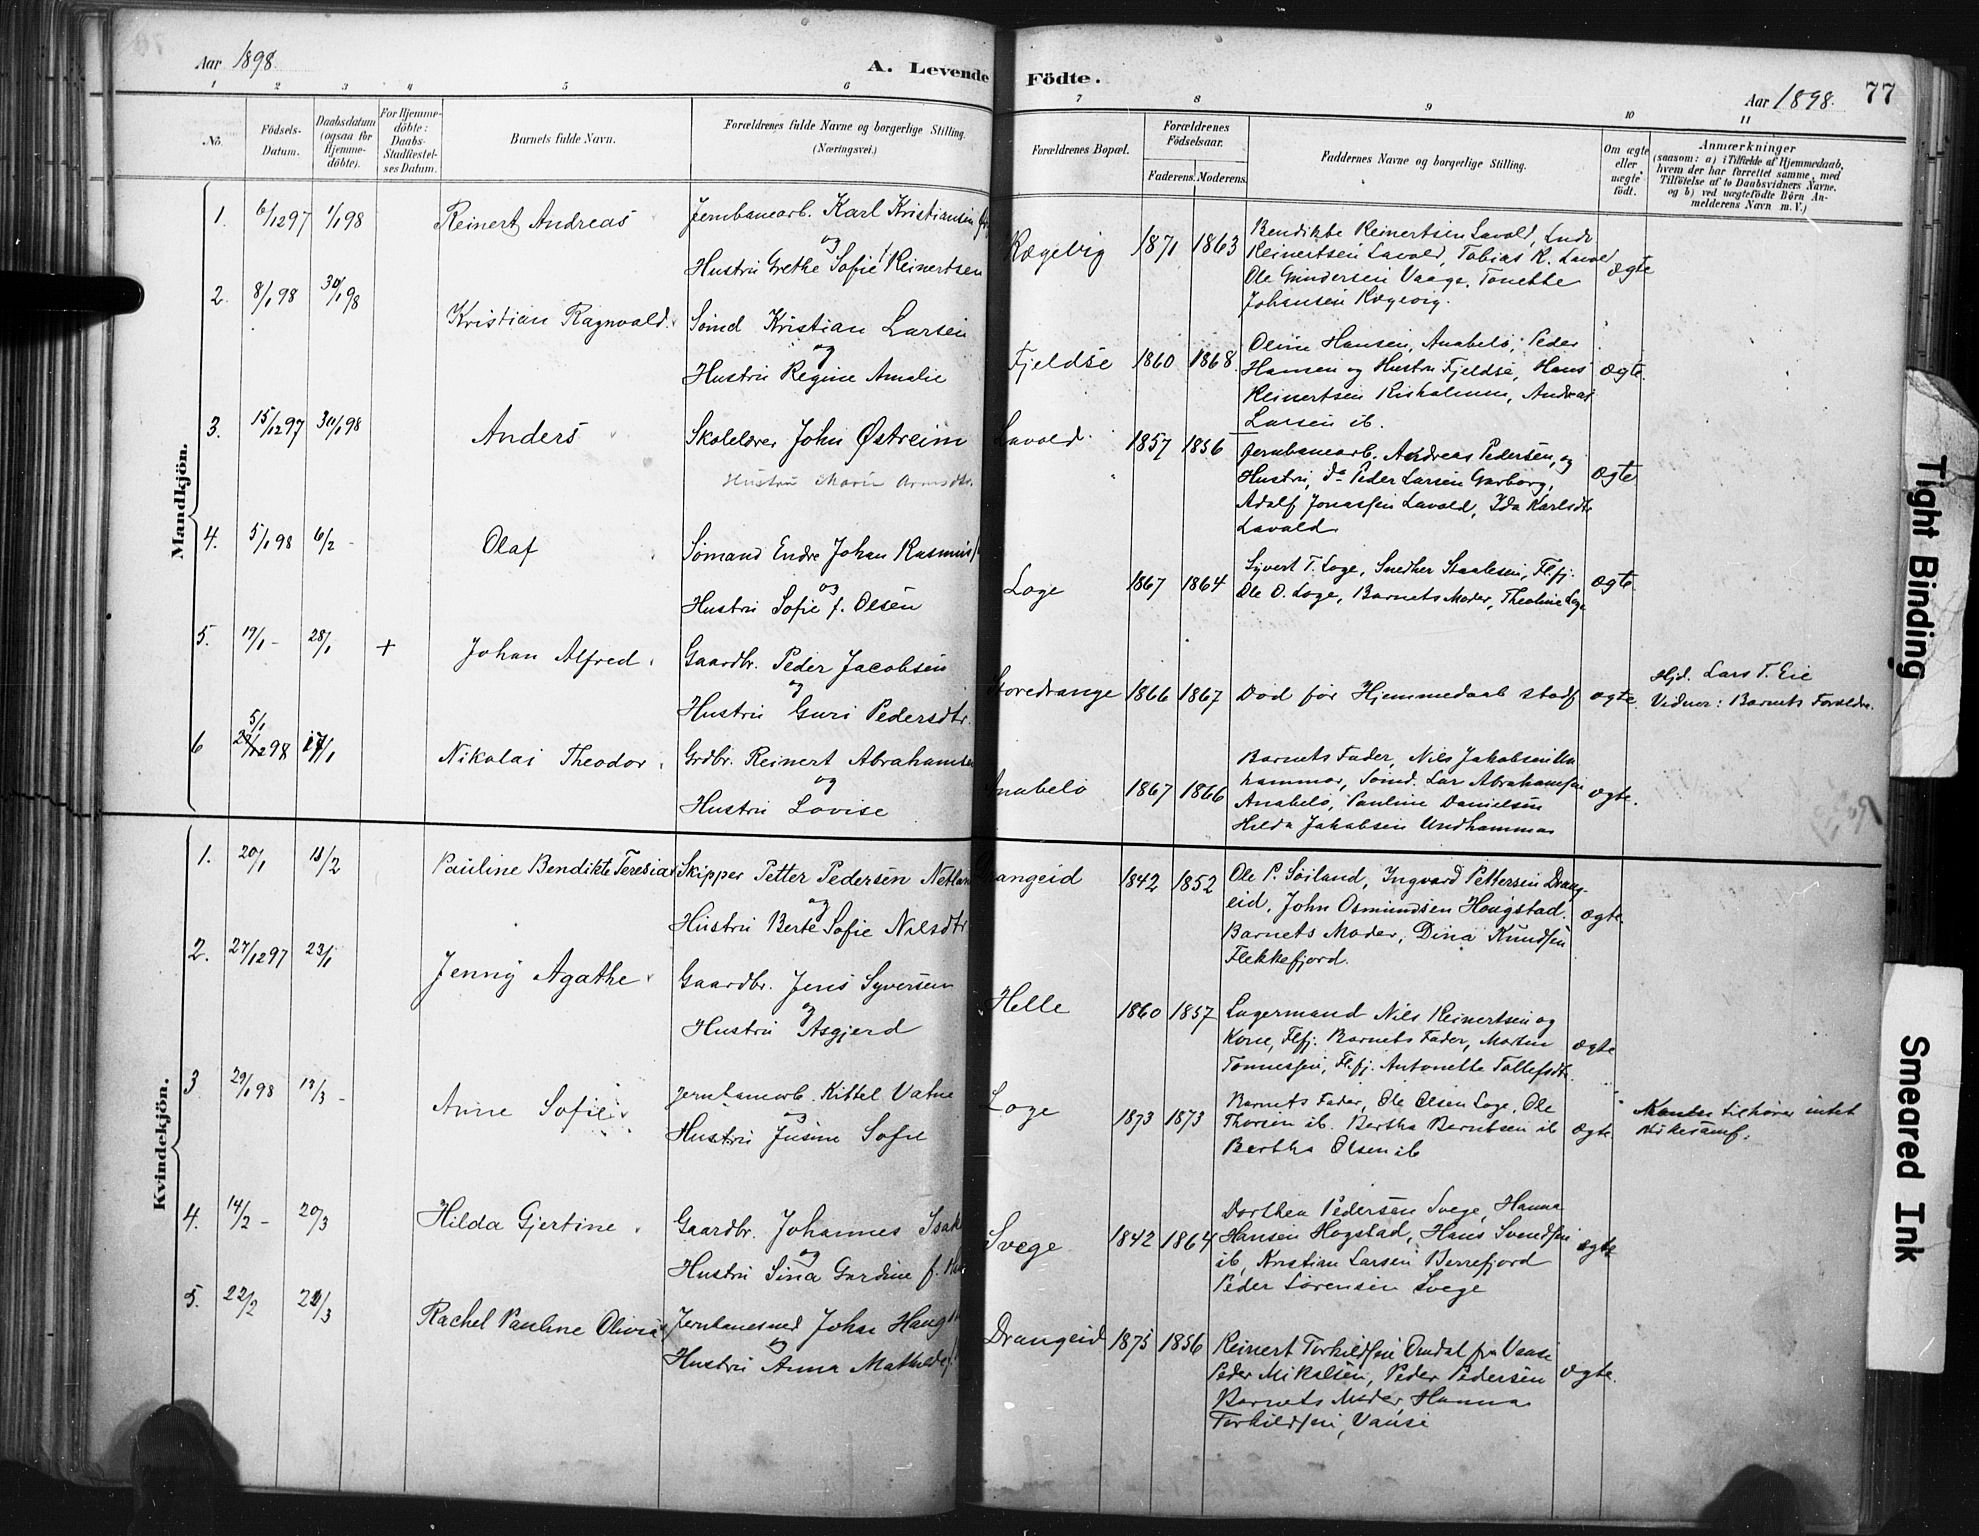 Aar 1898.
A. Levende Födte.
Aar 1898.
77
1 2 3 4 5 6 7 8 9 10 11
No.
Födsels-
Datum.
Daabsdatum
(ogsaa for
Hjemme-
döbte).
For Hjemme-
döbte:
Daabs-
Stadfæstel-
ses Datum.
Barnets fulde Navn.
Forældrenes fulde Navne og borgerlige Stilling.
(Næringsvei.)
Forældrenes Bopæl.
Forældrenes
Födselsaar.
Faderens. Moderens.
Faddernes Navne og borgerlige Stilling.
Om ægte
eller
uægte
født.
Anmærkninger
(saasom: a) i Tilfælde af Hjemmedaab,
hvem der har forrettet samme, med
Tilföielse af to Daabsvidners Navne.
og b) ved uægtefödte Börn An-
melderens Navn m. V.)
Mandkjön.
1. 6/12 97 1/1 98 Reinert Andreas Jernbanearb. Karl Kristiansen
og
Hustru Grethe Sofie Reinertsen
Rægevig 1871 1863
Bendikte Reinertsen Lavold,
Reinertsen Lavold, Tobias R. Lavold
Ole Gundersen Vaage, Tonette
Johansen Rægevig.
ægte
2. 8/1 98 30/1 98 Kristian Ragnvald. Sømd Kristian Larsen
og
Hustru Regine Amalie
Fjeldse 1860 1868.
Oline Hansen, Anabelø, Peder
Hansen og Hustru Fjeldse, Hans
Reinertsen Risholmen, Andreas
Larsen ib.
ægte.
3. 15/12 97 30/1 98 Anders Skolelærer John Østreim
Hustru Marie
Lavold. 1857 1856
Jernbanearb. Andreas Pedersen, og
Hustru, do Peder Larsen Garborg,
Adolf Jonassen Lavold, Ida Karlsdtr
Lavold
ægte
4. 5/1 98 6/2 - Olaf Sømand Endre Johan Rasmus
og
Hustru Sofie f. Olsen
Loge 1867 1864
Syvert T. Loge, Snether Staalesen, Flfj.
Ole O. Loge, Barnets Moder, Theoline Loge
ægte.
5. 19/1 - 28/1 + Johan Alfred. Gaardbr. Peder Jacobsen
og
Hustru Guri Pedersdtr.
Storedrange 1866 1867 Død før Hjemmedaab stadf ægte
Hjd. Lars T. Eie
Vidner: Barnets Forældre.
6 5/1
98 Nikolai Theodor. Grdbr. Reinert Abrahamsen
og
Hustru Lovise
Anabelø 1867 1866
Barnets Fader, Nils Jakobsen Un
hammar, Sømd. Lar Abrahamsen
Anabelø, Pauline Danielsen
Hilda Jakobsen Undhammar
ægte.
Kvindekjön.
1. 20/1 13/2 Pauline Bendikte Teresia Skipper Petter Pedersen Netland
og
Hustru Berte Sofie Nilsdtr
Drangeid 1842 1852
Ole P. Søiland, Ingvard Pettersen Drang-
eid, John Osmundsen Hougstad.
Barnets Moder, Dina Knudsen
Flekkefjord.
ægte.
2. 27/12 97 23/1 Jenny Agathe Gaardbr. Jens Syversen
og
Hustru Asgjerd
Helle 1860 1857
Lagermand Nils Reinertsen og
Kone, Flfj. Barnets Fader, Morten
Tønnessen, Flfj. Antonette Tollefsdtr.
ægte
3 29/1 98 13/3 - Anne Sofie Jernbanearb. Kittel Vatne
og
Hustru Jusine Sofie
Loge 1873 1873
Barnets Fader, Ole Olsen Loge, Ole
Thorsen ib. Bertha Berntsen ib
Bertha Olsen ib
ægte
tilhører intet
Kirkesamf.
4. 14/2 - 20/3 Hilda Gjertine. Gaardbr. Johannes Isak
og
Hustru Sina Gurdine f.
Svege 1842 1864
Dorthea Pedersen Svege, Hanna
Hansen Hogstad, Hans Svendsen
ib, Kristian Larsen Berrefjord
Peder Sørensen Svege
ægte
5. 22/2 /3 Rachel Pauline Olivia Jernbanesmed John Haug
og
Hustru Anna Mathilde
Drangeid 1875 1856
Reinert Torkildsen Omdal fra Vanse
Peder Mikalsen, Peder Pedersen
Barnets Moder, Hanna
Torkildsen, Vanse
ægte.
Tight Binding
Smeared Ink